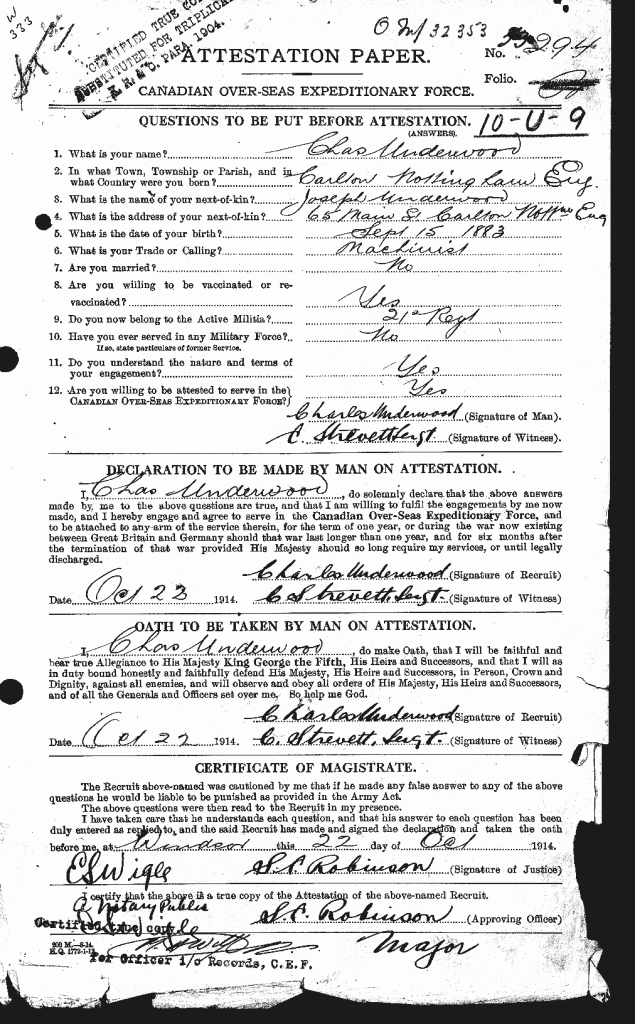 W
333
CERTIFIED TRUE COPY
SUBSTITUTED FOR TRIPLICATE
K. R. & O. PARA. 1904.
O M/ 32353
ATTESTATION PAPER.
No. 294
Folio.
CANADIAN OVER-SEAS EXPEDITIONARY FORCE.
QUESTIONS TO BE PUT BEFORE ATTESTATION.
(ANSWERS).
10-U-9
1. What is your name? Chas Underwood
2. In what Town, Township or Parish, and in
what Country were you born? Carlton Nottingham Eng.
3. What is the name of your next-of-kin? Joseph Underwood
4. What is the address of your next-of-kin? 65 Main St Carlton Notts Eng
5. What is the date of your birth? Sept 15 1883
6. What is your Trade or Calling? Machinist
7. Are you married? No
8. Are you willing to be vaccinated or re-
vaccinated? Yes
9. Do you now belong to the Active Militia? 21st Regt
10. Have you ever served in any Military Force? No
If so, state particulars of former Service.
11. Do you understand the nature and terms of
your engagement? Yes
12. Are you willing to be attested to serve in the
CANADIAN OVER-SEAS EXPEDITIONARY FORCE? Yes
Charles Underwood (Signature of Man).
C. Strevett, Sergt (Signature of Witness).
DECLARATION TO BE MADE BY MAN ON ATTESTATION.
I, Chas Underwood, do solemnly declare that the above answers
made by me to the above questions are true, and that I am willing to fulfil the engagements by me now
made, and I hereby engage and agree to serve in the Canadian Over-Seas Expeditionary Force, and
to be attached to any arm of the service therein, for the term of one year, or during the war now existing
between Great Britain and Germany should that war last longer than one year, and for six months after
the termination of that war provided His Majesty should so long require my services, or until legally
discharged.
Charles Underwood (Signature of Recruit)
Date Oct 22 1914. C. Strevett, Sergt. (Signature of Witness)
OATH TO BE TAKEN BY MAN ON ATTESTATION.
I, Chas Underwood, do make Oath, that I will be faithful and
bear true Allegiance to His Majesty King George the Fifth, His Heirs and Successors, and that I will as
in duty bound honestly and faithfully defend His Majesty, His Heirs and Successors, in Person, Crown and
Dignity, against all enemies, and will observe and obey all orders of His Majesty, His Heirs and Successors,
and of all the Generals and Officers set over me. So help me God.
Charles Underwood (Signature of Recruit)
Date Oct 22 1914. C. Strevett, Sergt. (Signature of Witness)
CERTIFICATE OF MAGISTRATE.
The Recruit above-named was cautioned by me that if he made any false answer to any of the above
questions he would be liable to be punished as provided in the Army Act.
The above questions were then read to the Recruit in my presence.
I have taken care that he understands each question, and that his answer to each question has been
duly entered as replied to, and the said Recruit has made and signed the declaration and taken the oath
before me, at Windsor this 22 day of Oct 1914.
E S Wigle S. C. Robinson (Signature of Justice)
I certify that the above is a true copy of the Attestation of the above-named Recruit.
a Notary Public S. C. Robinson (Approving Officer)
Certified true copy
Major
200 M.—8-14.
H.Q. 1772-1-13
For Officer i/c Records, C.E.F.